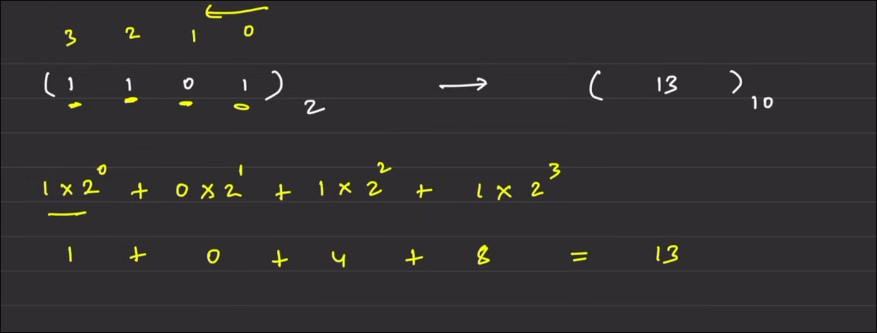 3 2 1 0
(1 1 0 1)₂ → (13)₁₀
1 × 2⁰ + 0 × 2¹ + 1 × 2² + 1 × 2³
1 + 0 + 4 + 8 = 13